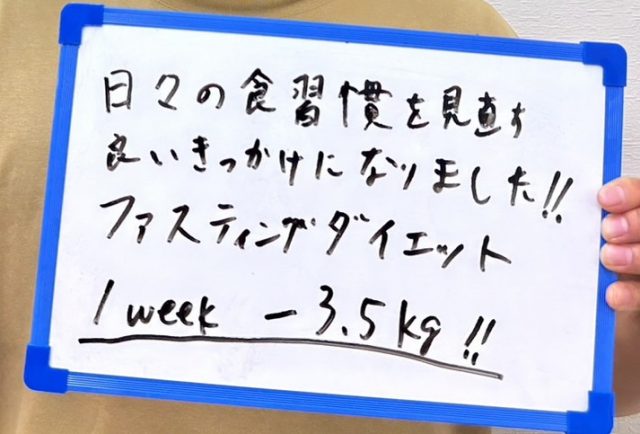 日々の食習慣を見直す
良いきっかけになりました!!
ファスティングダイエット
1 week -3.5kg!!